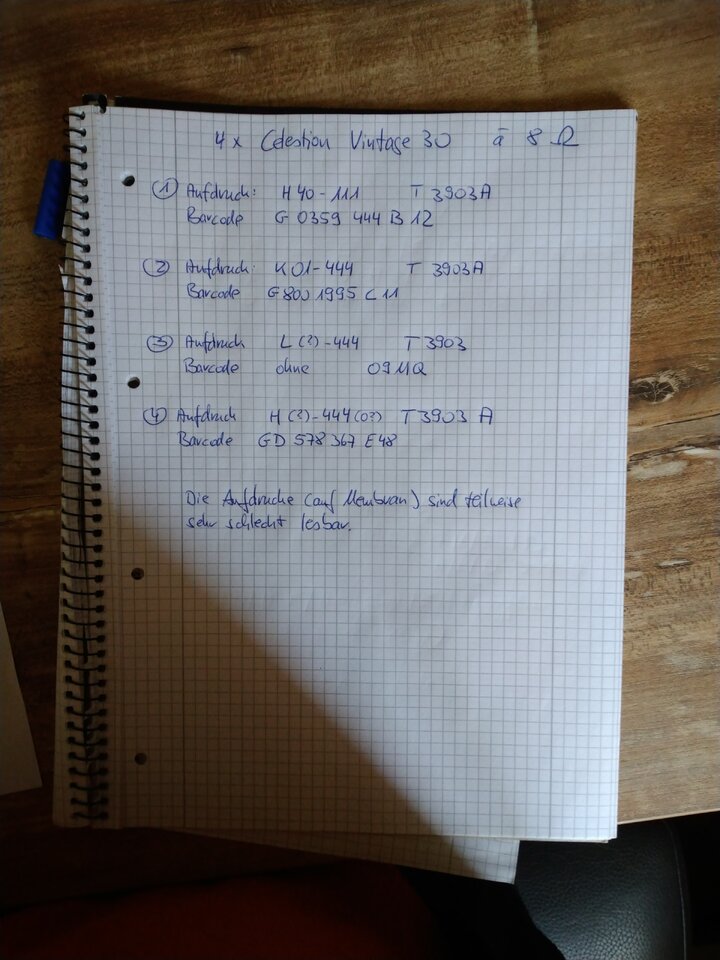 4 x Celestion Vintage 30 à 8 Ω
① Aufdruck: H 40 - 111 T 3903A
Barcode G 0359 444 B 12
② Aufdruck: K 01 - 444 T 3903A
Barcode G 800 1995 C 11
③ Aufdruck L (?) - 444 T 3903
Barcode ohne 09 MQ
④ Aufdruck H (?) - 444 (0?) T 3903 A
Barcode GD 578 367 E 48
Die Aufdrucke (auf Membran) sind teilweise
sehr schlecht lesbar.